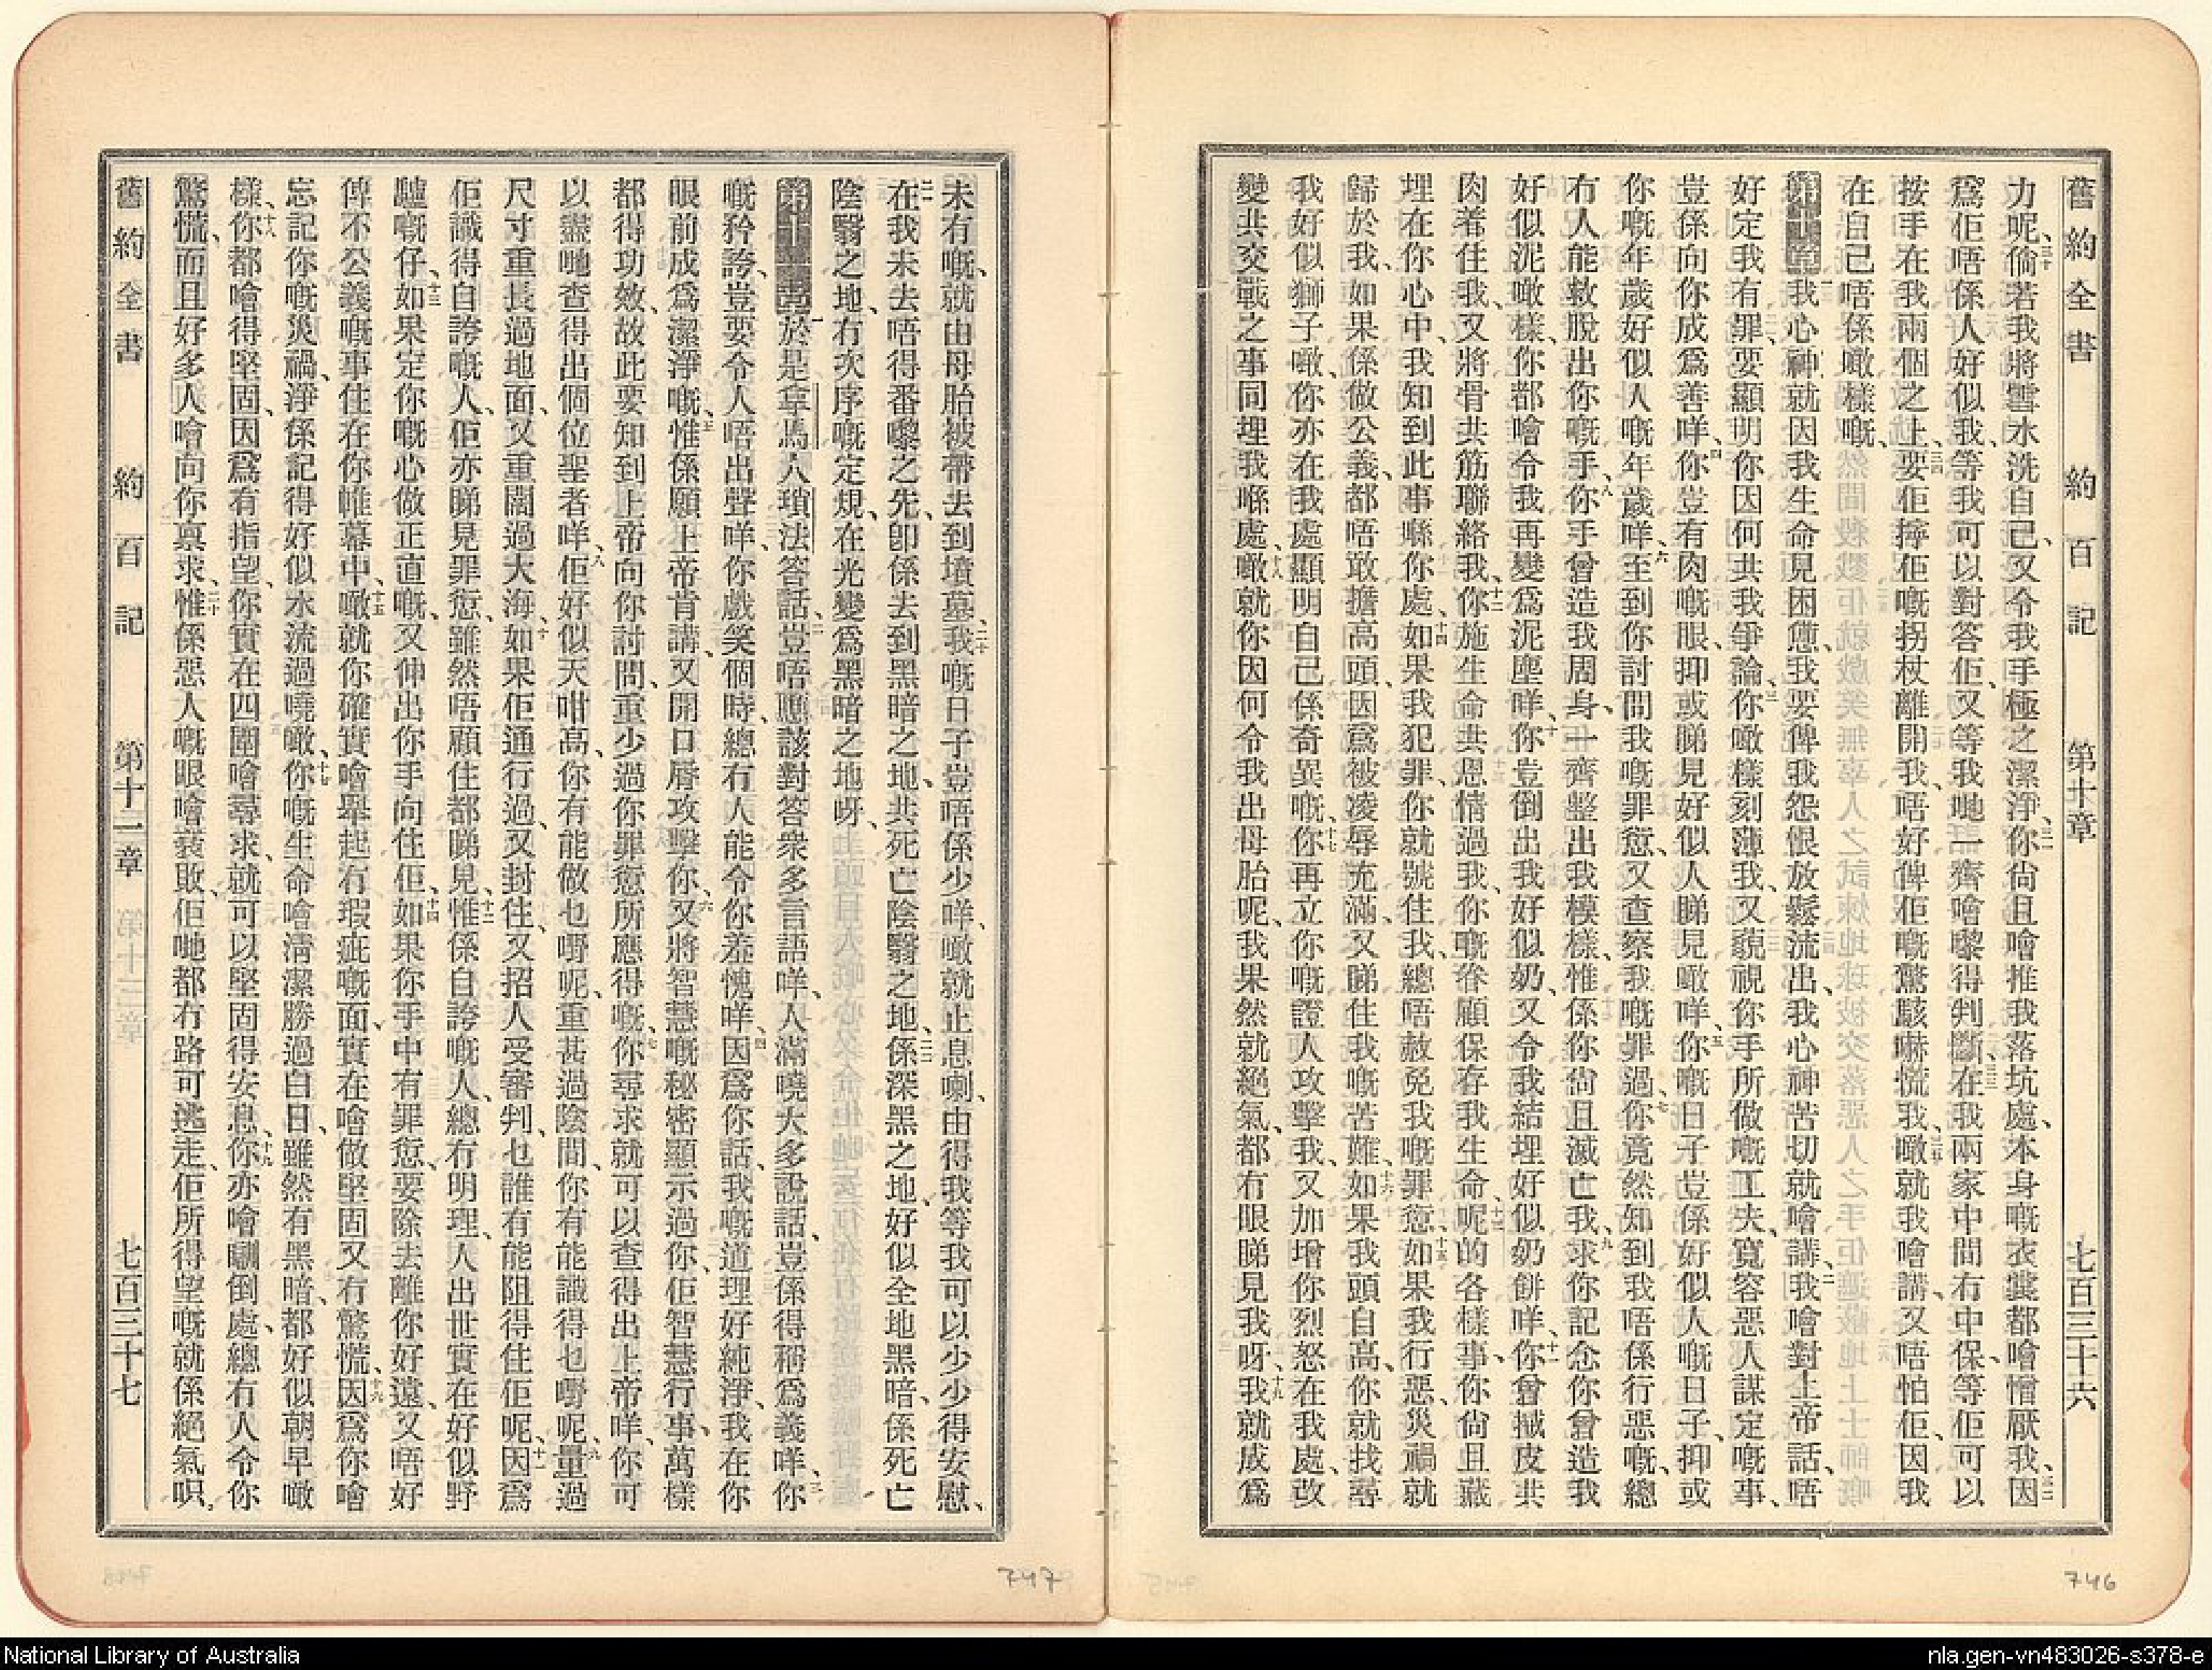 舊約全書 約百記 第十章 七百三十六
力呢、三十倘若我將雪水洗自己、又令我手極之潔淨、三一你尙且噲推我落坑處、本身嘅衣裳都噲憎厭我、三二因
爲佢唔係人好似我、等我可以對答佢、又等我哋一齊噲嚟得判斷、三三在我兩家中間冇中保、等佢可以
按手在我兩個之上、三四要佢擰佢嘅拐杖離開我、唔好俾佢嘅驚駭嚇慌我、三五噉就我噲講、又唔怕佢、因我
在自己唔係噉樣嘅、
第十章 一我心神就因我生命見困憊、我要俾我怨恨放鬆流出、我心神苦切就噲講、二我噲對上帝話、唔
好定我有罪、要顯明你因何共我爭論、三你噉樣刻薄我、又藐視你手所做嘅工夫、寬容惡人謀定嘅事、
豈係向你成爲善咩、四你豈有肉嘅眼、抑或睇見好似人睇見噉咩、五你嘅日子豈係好似人嘅日子、抑或
你嘅年歲好似人嘅年歲咩、六至到你討問我嘅罪愆、又查察我嘅罪過、七你竟然知到我唔係行惡嘅、總
冇人能救脫出你嘅手、八你手曾造我周身、一齊整出我模樣、惟係你尙且滅亡我、九求你記念你曾造我
好似泥噉樣、你都噲令我再變爲泥塵咩、十你豈倒出我好似奶、又令我結埋好似奶餅咩、十一你曾摵皮共
肉著住我、又將骨共筋聯絡我、十二你施生命共恩情過我、你嘅眷顧保存我生命、十三呢的各樣事、你尙且藏
埋在你心中、我知到此事喺你處、十四如果我犯罪、你就號住我、總唔赦免我嘅罪愆、十五如果我行惡、災禍就
歸於我、如果係做公義、都唔敢擔高頭、因爲被凌辱充滿、又睇住我嘅苦難、十六如果我頭自高、你就找尋
我好似獅子噉、你亦在我處顯明自己係奇異嘅、十七你再立你嘅證人攻擊我、又加增你烈怒在我處、改
變共交戰之事同埋我喺處、十八噉就你因何令我出母胎呢、我果然就絕氣、都冇眼睇見我呀、十九我就成爲
未有嘅、就由母胎被帶去到墳墓、二十我嘅日子豈唔係少咩、噉就止息喇、由得我等我可以少少得安慰、
二一在我未去唔得番嚟之先、卽係去到黑暗之地、共死亡陰翳之地、二二係深黑之地、好似全地黑暗、係死亡
陰翳之地、冇次序嘅定規、在光變爲黑暗之地呀、
第十一章 一於是拿馬人瑣法答話、二豈唔應該對答衆多言語咩、人滿嘵大多說話、豈係得稱爲義咩、三你
嘅矜誇、豈要令人唔出聲咩、你戲笑個時、總冇人能令你羞愧咩、四因爲你話、我嘅道理好純淨、我在你
眼前成爲潔淨嘅、五惟係願上帝肯講、又開口脣攻擊你、六又將智慧嘅秘密顯示過你、佢智慧行事、萬樣
都得功效、故此要知到上帝向你討問、重少過你罪愆所應得嘅、七你尋求就可以查得出上帝咩、你可
以盡哋查得出個位聖者咩、八佢好似天咁高、你有能做乜嘢呢、重甚過陰間、你有能識得乜嘢呢、九量過
尺寸重長過地面、又重闊過大海、十如果佢通行過、又封住、又招人受審判、乜誰有能阻得住佢呢、十一因爲
佢識得自誇嘅人、佢亦睇見罪愆、雖然唔顧住都睇見、十二惟係自誇嘅人、總冇明理、人出世實在好似野
驢嘅仔、十三如果定你嘅心做正直嘅、又伸出你手向住佢、十四如果你手中有罪愆、要除去離你好遠、又唔好
俾不公義嘅事住在你帷幕中、十五噉就你確實噲舉起冇瑕疵嘅面、實在噲做堅固、又冇驚慌、十六因爲你噲
忘記你嘅災禍、淨係記得好似水流過嘵噉、十七你嘅生命噲清潔勝過白日、雖然有黑暗、都好似朝早噉
樣、十八你都噲得堅固、因爲有指望、你實在四圍噲尋求、就可以堅固得安息、十九你亦噲瞓倒處、總冇人令你
驚慌、而且好多人噲向你稟求、二十惟係惡人嘅眼噲衰敗、佢哋都冇路可逃走、佢所得望嘅就係絕氣呮、
舊約全書 約百記 第十一章 七百三十七
747
746
National Library of Australia
nla.gen-vn483026-s378-e